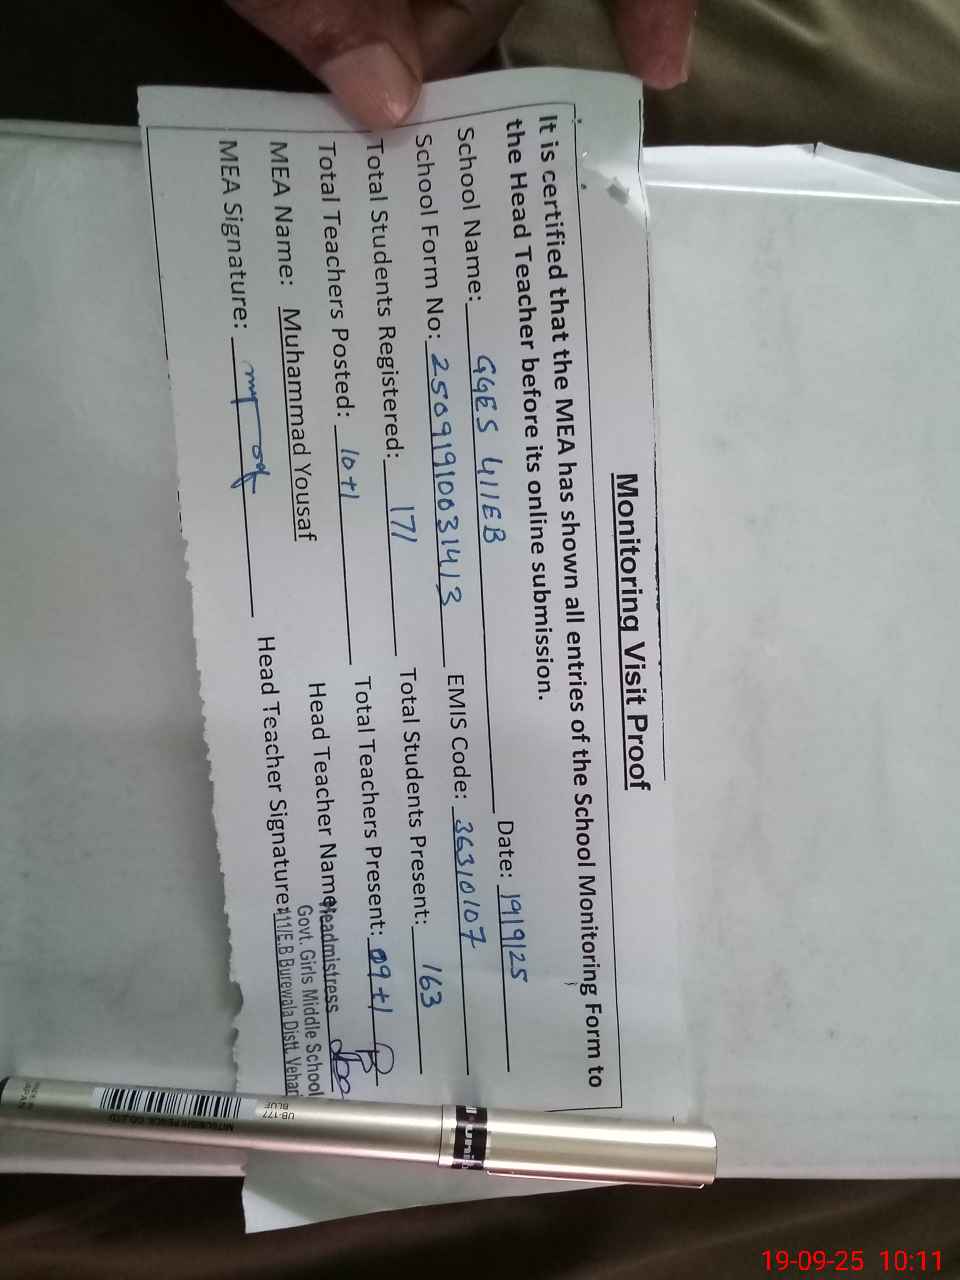 Monitoring Visit Proof
It is certified that the MEA has shown all entries of the School Monitoring Form to
the Head Teacher before its online submission.
School Name: GGES 411EB Date: 19/9/25
School Form No: 25091910031413 EMIS Code: 36310107
Total Students Registered: 171 Total Students Present: 163
Total Teachers Posted: 10+1 Total Teachers Present: 09+1
MEA Name: Muhammad Yousaf Head Teacher Name: Headmistress
Govt. Girls Middle School
MEA Signature: Head Teacher Signature: 411/E.B Burewala Distt. Vehari
UB-177
BLUE
MITSUBISHI PENCIL CO., LTD
uni
19-09-25 10:11